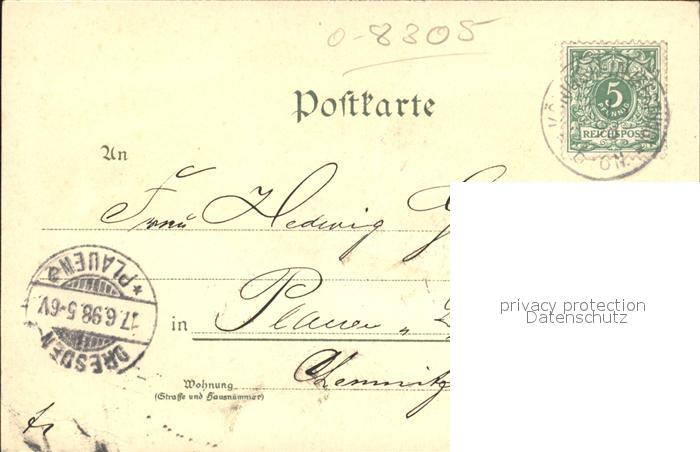 0-8305
5
PFENNIG
REICHSPOST
Postkarte
An
Frau Hedwig
DRESDEN * PLAUEN *
17.6.98.5-6V.
in Plauen
Chemnitz
Wohnung
(Straße und Hausnummer)
privacy protection
Datenschutz